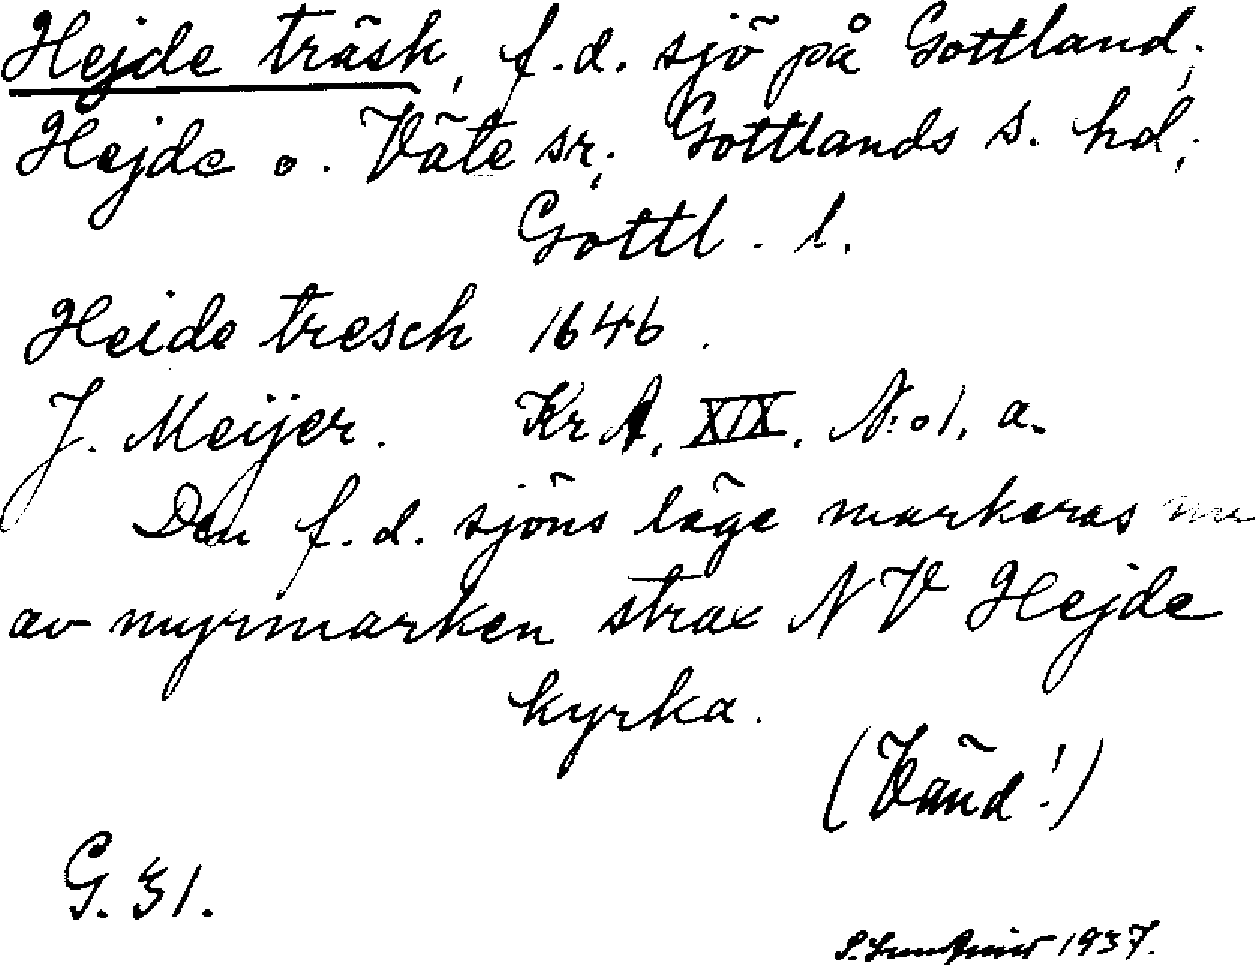 Hejde träsk, f.d. sjö på Gottland;
Hejde o. Väte sr; Gottlands s. hd;
Gottl. l.
Heide tresch 1646.
J. Meijer. Kr A. XIX. N:o 1. a.
Den f.d. sjöns läge markeras nu
av myrmarken strax NV Hejde
kyrka.
(Vänd!)
G. 31.
1937.